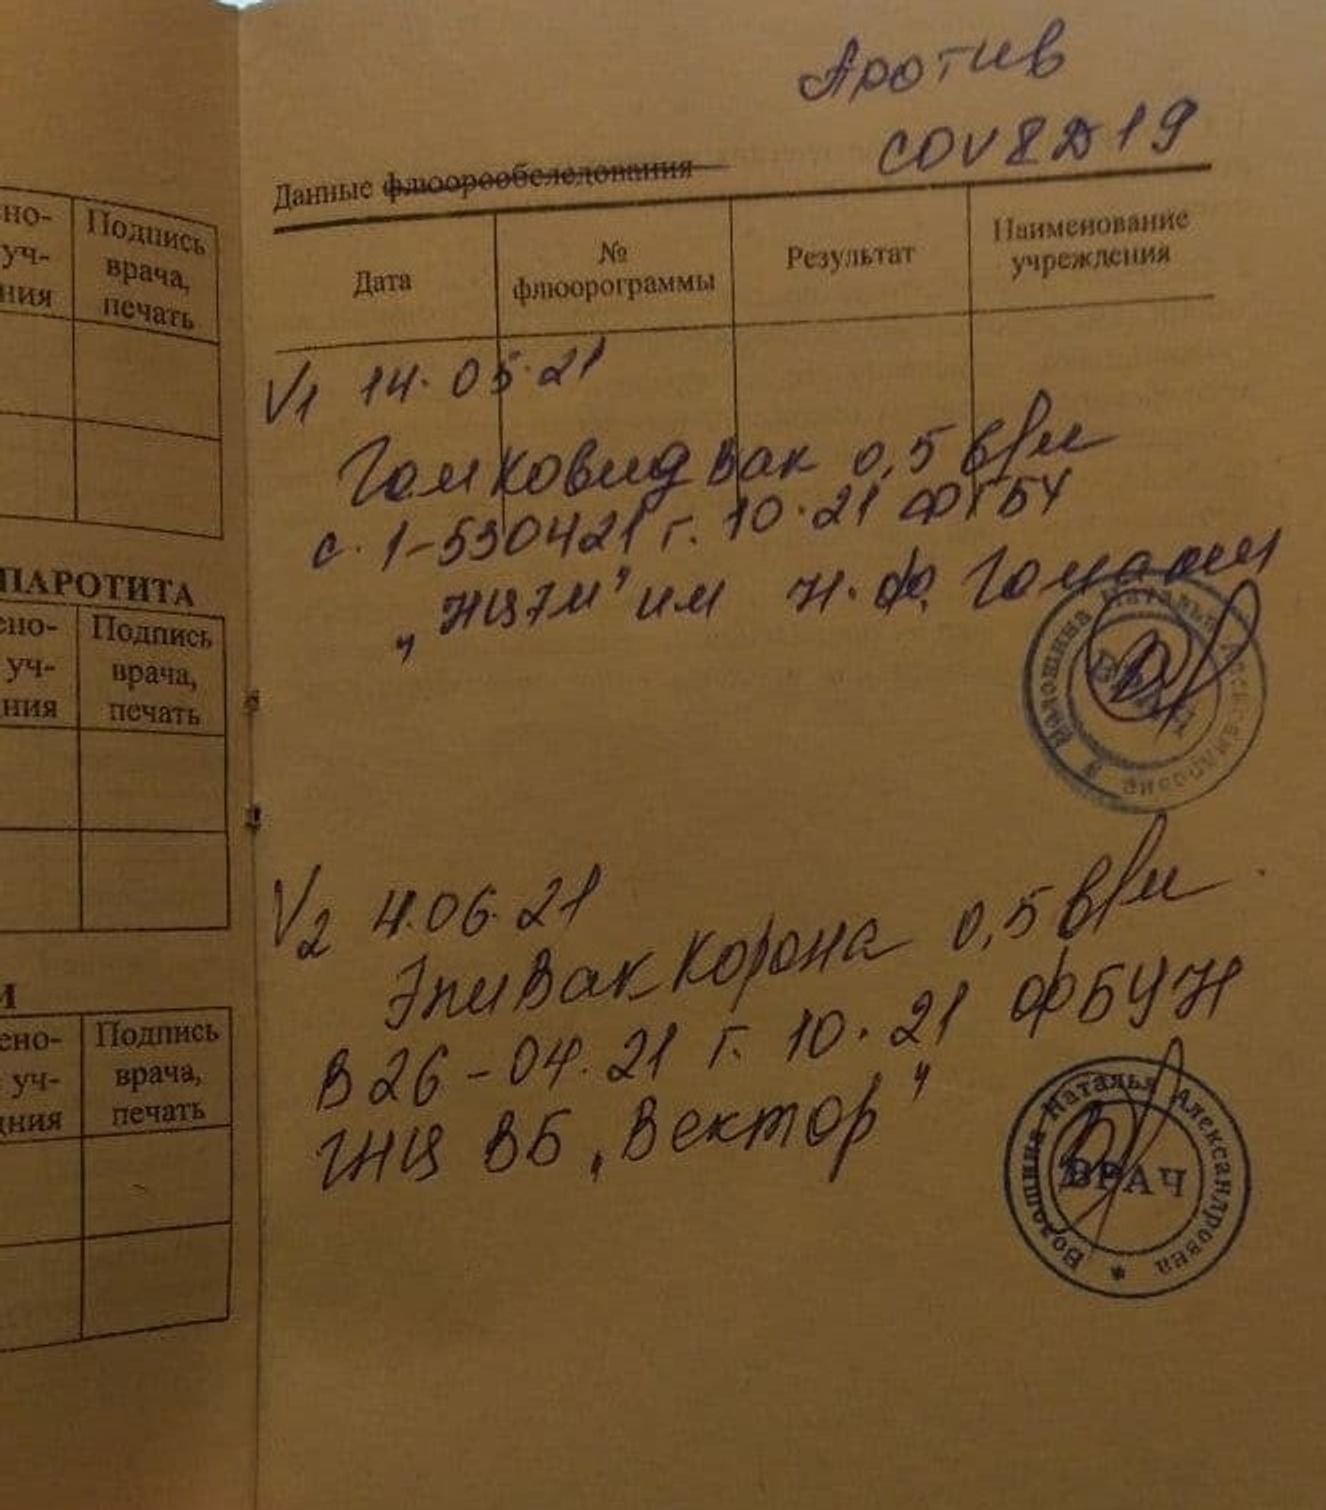 Против
COVID19
Данные флюорообследования
Дата
№
флюорограммы
Результат
Наименование
учреждения
V1 14.05.21
Гам Ковид Вак 0,5 в/м
с. 1-530421 г. 10.21 ФГБУ
„НЦЭМ" им Н.Ф. Гамалеи
Волошина Наталья Александровна
ВРАЧ
V2 4.06.21
ЭпиВакКорона 0,5 в/м
В26-04.21 г. 10.21 ФБУН
ГНЦ ВБ „Вектор"
Волошина Наталья Александровна
ВРАЧ
но-
уч-
ния
Подпись
врача,
печать
ПАРОТИТА
ено-
уч-
ния
Подпись
врача,
печать
И
ено-
уч-
дния
Подпись
врача,
печать